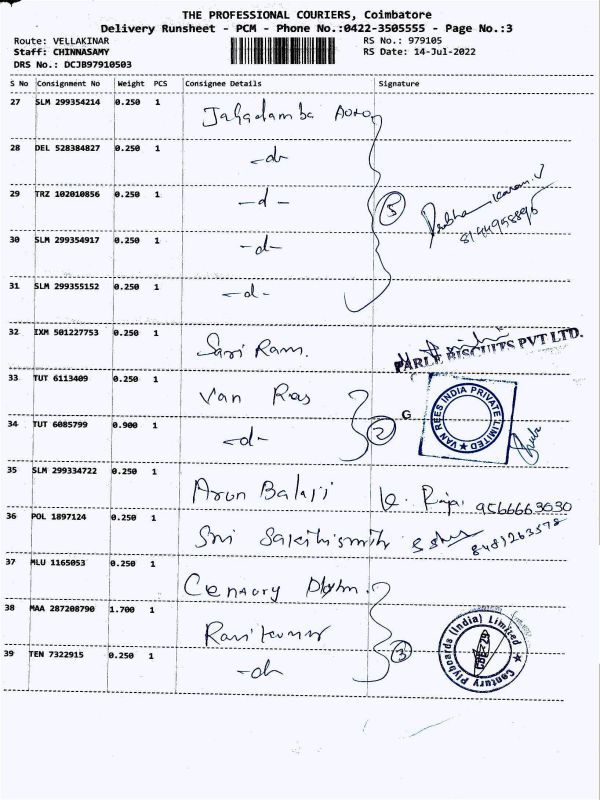 THE PROFESSIONAL COURIERS, Coimbatore
Delivery Runsheet - PCM - Phone No.:0422-3505555 - Page No.:3
Route: VELLAKINAR
RS No.: 979105
Staff: CHINNASAMY
RS Date: 14-Jul-2022
DRS No.: DCJB97910503
S No Consignment No Weight PCS Consignee Details Signature
27 SLM 299354214 0.250 1 Jagadamba Auto
28 DEL 528384827 0.250 1 -do-
29 TRZ 102010856 0.250 1 -d-
5
Prabhakaran.V
8144958896
30 SLM 299354917 0.250 1 -d-
31 SLM 299355152 0.250 1 -d-
32 IXM 501227753 0.250 1 Sari Ram.
PARLE BISCUITS PVT LTD.
33 TUT 6113409 0.250 1 Van Rees
VAN REES INDIA PRIVATE LIMITED ★
G
34 TUT 6085799 0.900 1 -d- 2
35 SLM 299334722 0.250 1 Arun Balaji K. Raja 9566663030
36 POL 1897124 0.250 1 Sri Sakthismith 8481263578
37 MLU 1165053 0.250 1 Century Plym.
38 MAA 287208790 1.700 1 Ravikumar
3
Century Plyboards (India) Limited ★
CBE-29
39 TEN 7322915 0.250 1 -do-